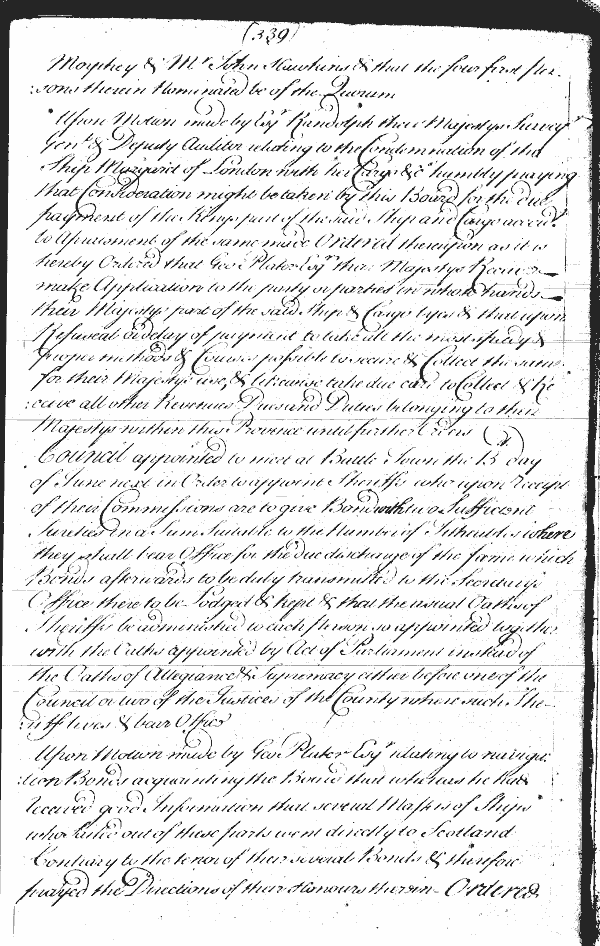 (339)
Morphey & Mr John Hawkins & that the four first per-
sons therein Nominated be of the Quorum
Upon Motion made by Esqr Randolph their Majestys Survey
Genll & Deputy Auditor relating to the Condemnation of the
Ship Margaret of London with her Cargo &ca humbly praying
that Consideration might be taken by this Board for the due
payment of the Kings part of the said Ship and Cargo accord
to Apraisment of the same made Ordered thereupon as it is
hereby Ordered that Geo Plater Esqr their Majestys Receiver
make Application to the party or parties in whose hands
their Majestys part of the said Ship & Cargo lyes & that upon
Refuseal or delay of payment to take all the most speedy &
proper methods & Courses possible to secure & Collect the same
for their Majestys use, & likewise take due care to Collect & Re
ceive all other Revenues Dues and Duties belonging to their
Majestys within this Province until further Orders
Council appointed to meet at Battle Town the 15 day
of June next in Order to appoint Sheriffs who upon receipt
of their Commissions are to give Bond with two Sufficient
Sureties in a Sum Suitable to the Number of Tithables where
they shall bear Office for the due discharge of the same which
Bonds afterwards to be duly transmitted to the Secretarys
Office there to be Lodged & kept & that the usual Oaths of
Sheriffs be administred to each person so appointed together
with the Oaths appointed by Act of Parliament instead of
the Oaths of Allegiance & Supremacy either before one of the
Council or two of the Justices of the County where such She-
riff lives & bears Office
Upon Motion made by Geo Plater Esqr relating to naviga
tion Bonds acquainting the Board that whereas he had
received good Information that several Masters of Ships
who sailed out of these parts went directly to Scotland
Contrary to the tenor of their several Bonds & therefore
prayed the Directions of their Honours therein Ordered